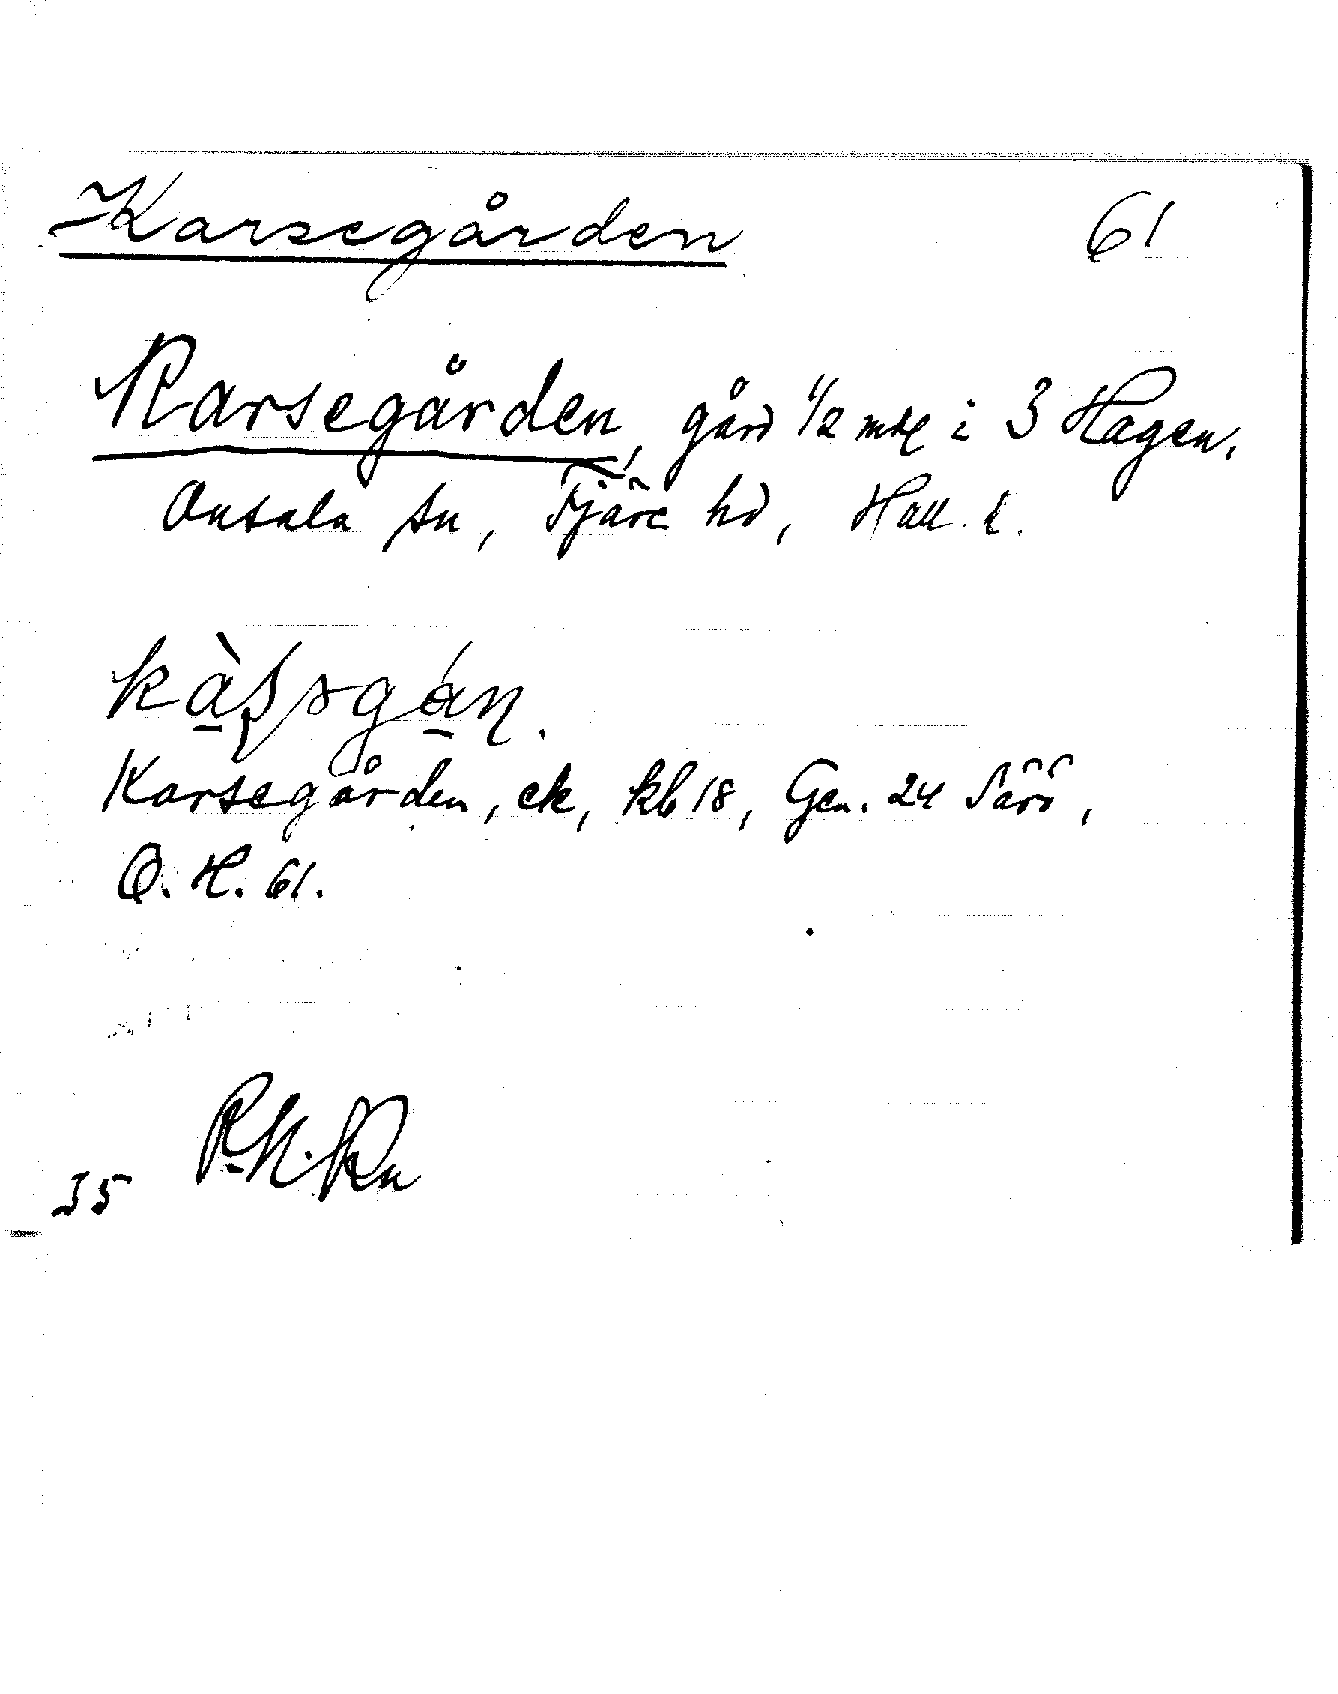 Karsegården 61
Karsegården, gård 1/2 mtl i 3 Hagen,
Onsala sn, Fjäre hd, Hall. l.
Karsegården, ek, kb 18, Gen. 24 Särö,
O. H. 61.
35